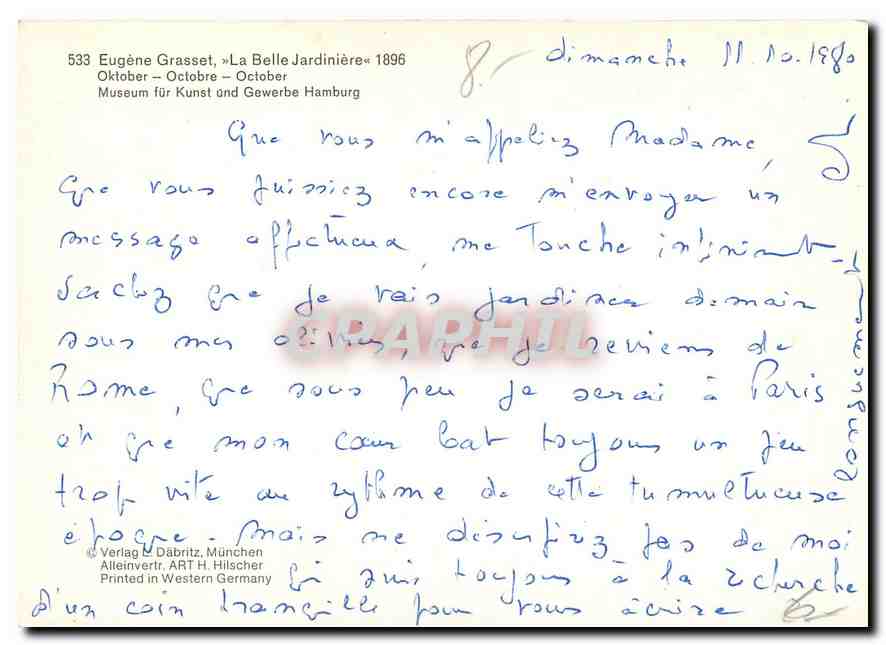 533 Eugène Grasset, »La Belle Jardinière« 1896
Oktober – Octobre – October
Museum für Kunst und Gewerbe Hamburg
8.-
dimanche 11.10.1980
Que vous m'appeliez Madame,
Que vous puissiez encore m'envoyer un
message affectueux, me touche infiniment
Sachez que je vais jardiner demain
sous mes oliviers, que je reviens de
Rome, que sous peu je serai à Paris
et que mon cœur bat toujours un peu
trop vite au rythme de cette tumultueuse
époque. Mais ne désespérez pas de moi
qui suis toujours à la recherche
d'un coin tranquille pour vous écrire
© Verlag E. Däbritz, München
Alleinvertr. ART H. Hilscher
Printed in Western Germany
CPAPHIL